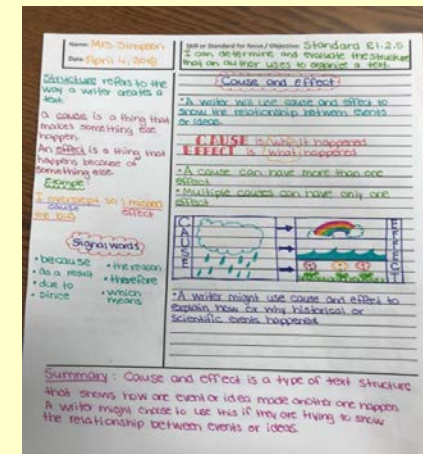 Name: Mrs. Simpson
Date: April 4, 2018
Skill or Standard for Focus / Objective: Standard 8.1.2.5
I can determine and evaluate the structure
that an author uses to organize a text.
Structure refers to the
way a writer creates a
text.
a cause is a thing that
makes something else
happen.
An effect is a thing that
happens because of
something else.
Example:
I overslept so I missed
cause effect
the bus
Signal words
• because
• as a result
• due to
• since
• the reason
• therefore
• which
means
Cause and Effect
• A writer will use cause and effect to
show the relationship between events
or ideas.
CAUSE is why it happened
EFFECT is what happened
• A cause can have more than one
effect
• Multiple causes can have only one
effect
CAUSE
EFFECT
• A writer might use cause and effect to
explain how or why historical or
scientific events happened
Summary: Cause and effect is a type of text structure
that shows how one event or idea made another one happen.
A writer might choose to use this if they are trying to show
the relationship between events or ideas.